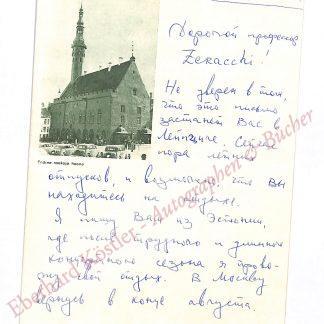 Дорогой профессор
Zekacchi!
Не уверен в том,
что это письмо
застанет Вас в
Лейпциге. Сейчас
пора летних
отпусков, и возможно, что Вы
находитесь на отдыхе.
Я пишу Вам из Эстонии,
где после трудного и длинного
концертного сезона я прово-
жу свой отдых. В Москву
вернусь в конце августа.
Tallinna raekoja hoone
Eberhard Köstler - Autographen & Bücher